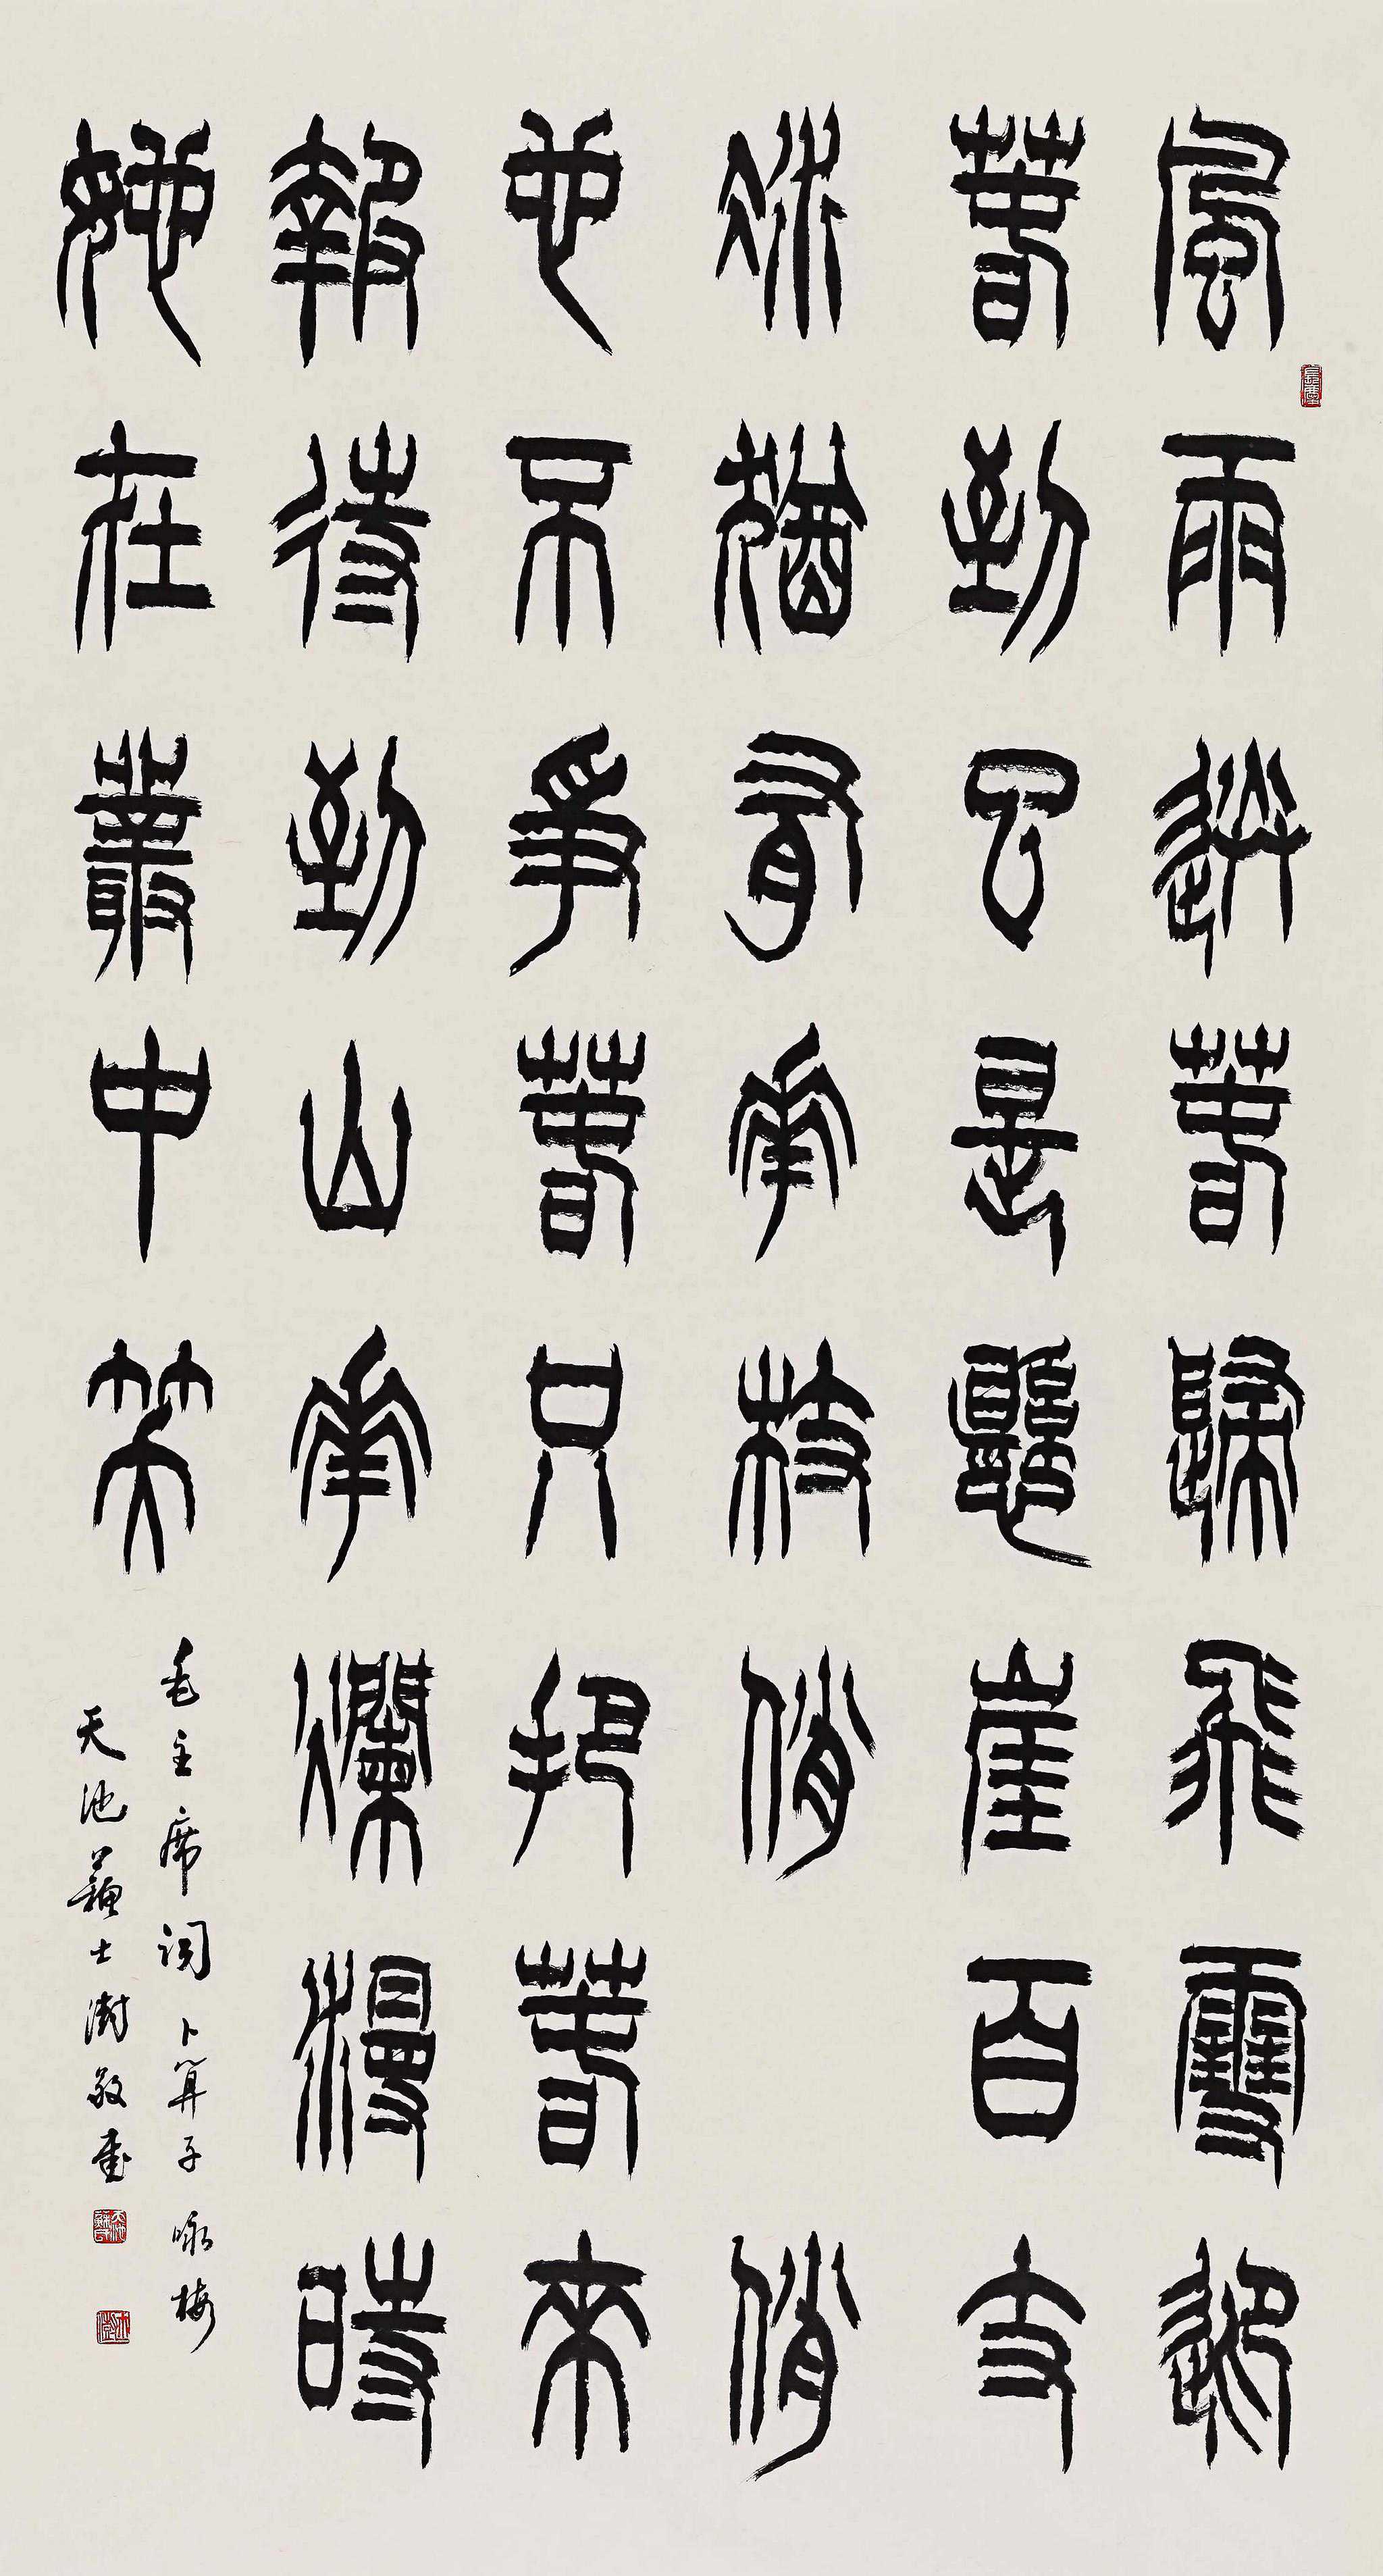 風雨送春歸飛雪迎
春到已是懸崖百丈
冰猶有花枝俏 俏
也不爭春只把春來
報待到山花爛漫時
她在叢中笑
毛主席詞卜算子詠梅
天池蘇士澍敬書